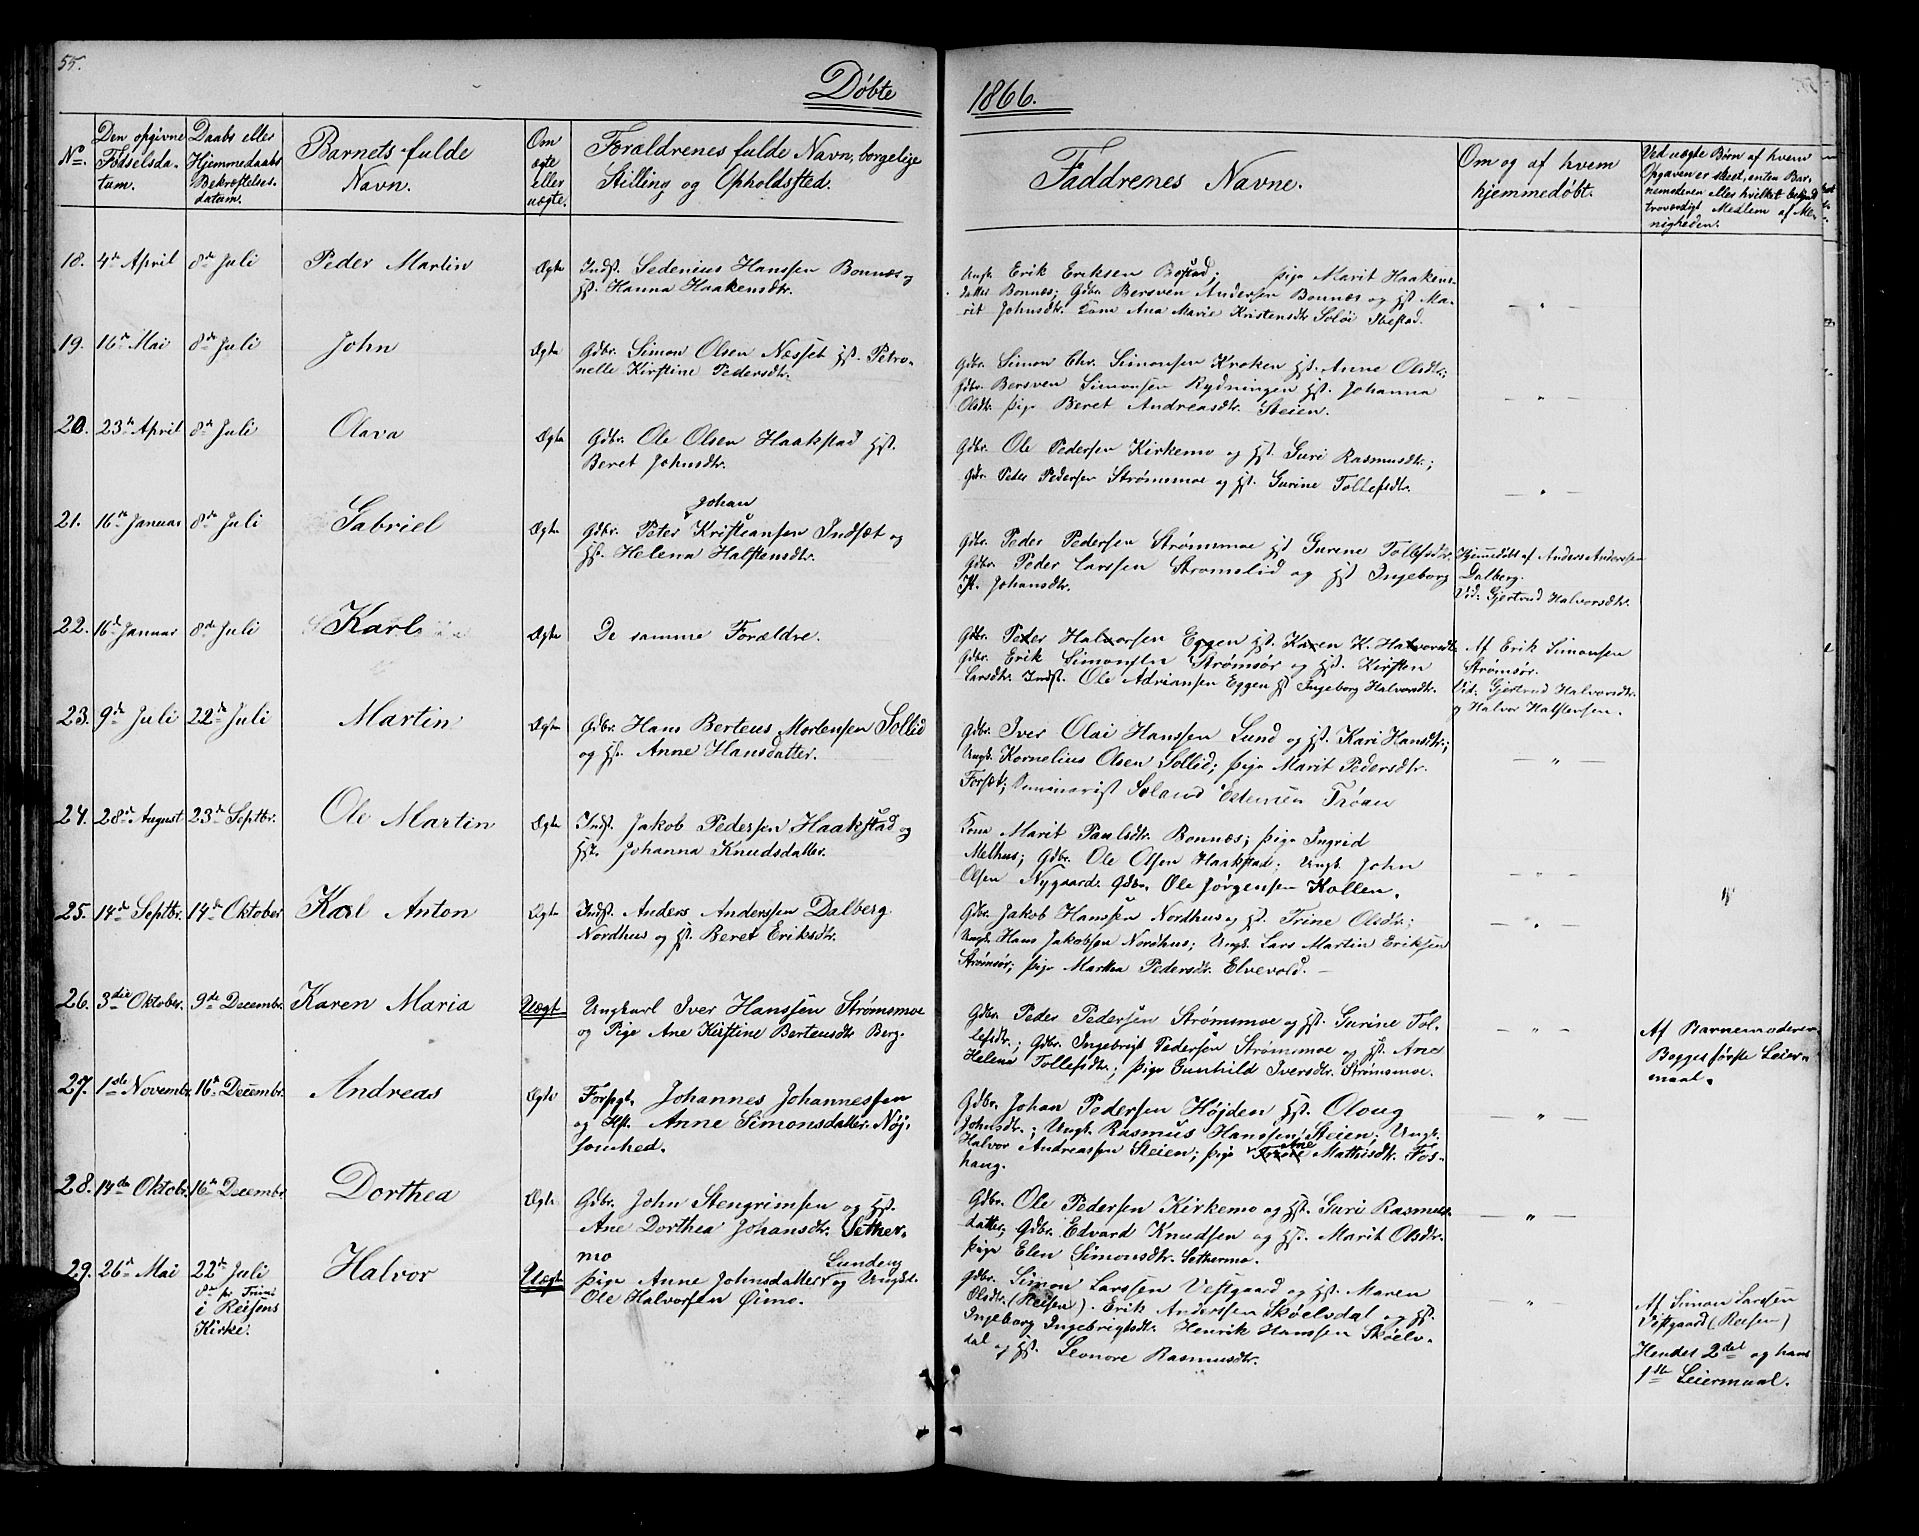 55.
Døbte
1866.
No.
Den opgivne
Fødselsda-
tum.
Daabs eller
Hjemmedaabs
Bekræftelses-
datum.
Barnets fulde
Navn.
Om
ægte
eller
uægte.
Forældrenes fulde Navn, borgelige
Stilling og Opholdssted.
Faddrenes Navne.
Om og af hvem
hjemmedøbt.
Ved uægte Børn af hvem
Opgaven er skeet, enten Bar-
nemoderen eller hvilket bekjendt
troværdigt Medlem af Me-
nigheden.
18. 4de April 8de Juli Peder Martin Ægte Indst. Sedenius Hanssen Bonnæs og
Hst. Hanna Haakensdtr.
Ungk. Erik Eriksen Bostad; Pige Marit Haakens-
datter Bonnæs; Gdbr. Bersven Andersen Bonnæs og Hst. Ma-
rit Johnsdtr. Kone Ana Marie Kristensdtr Soløi Ibestad.
— " —
19. 16de Mai 8de Juli John Ægte Gdbr. Simon Olsen Næsset Hst. Petro-
nelle Kirstine Pedersdtr.
Gdbr. Simon Chr. Simonsen Kroken Hst. Anne Olsdtr;
Gdbr. Bersven Simonsen Rydningen Hst. Johanna
Olsdtr. Pige Beret Andreasdtr. Steien.
— " —
20. 23de April 8de Juli Olava Ægte Gdbr. Ole Olsen Haakstad Hst.
Beret Johnsdtr.
Gdbr. Ole Pedersen Kirkemo og Hst. Guri Rasmusdtr.;
Gdbr. Peder Pedersen Strømsmoe og Hst. Gurine Tollefsdtr.
— " —
21. 16de Januar 8de Juli Gabriel Ægte Gdbr. Peter Johan Kristiansen Indsæt og
Hst. Helena Halstensdtr.
Gdbr. Peder Pedersen Strømsmoe Hst Gurine Tollefsdtr.
Gdbr. Peder Larssen Strømslid og Hst Ingeborg
K. Johansdtr.
Hjemmedøbt af Anders Andersen
Dalberg.
Vid: Gjertrud Halvorsdtr.
22. 16de Januar 8de Juli Karl Ægte De samme Forældre.
Gdbr. Peder Halvorsen Eggen Hst. Karen K. Halvorsdtr.
Gdbr. Erik Simonsen Strømsør og Hst. Kirsten
Larsdtr. Indst. Ole Adriansen Eggen Hst Ingeborg Halvorsdtr.
Af Erik Simonsen
Strømsør.
Vid. Gjertrud Halvorsdtr.
og Halvor Halstensen.
23. 9de Juli 22de Juli Martin Ægte Gdbr. Hans Berteus Mortensen Sollid
og Hst. Anne Hansdatter.
Gdbr. Iver Olai Hanssen Lund og Hst. Kari Hansdtr.;
Ungk. Kornelius Olsen Sollid; Pige Marit Pedersdtr.
Forsæt; Seminarist Roland Petersen Trøan
— " —
24. 28de August 23de Septbr. Ole Martin Ægte Indst. Jakob Pedersen Haakstad og
Hst. Johanna Knudsdatter.
Kone Marit Paulsdtr. Bonnæs; Pige Ingrid
Melhus; Gdbr. Ole Olsen Haakstad; Ungk. John
Olsen Nygaard. Gdbr. Ole Jørgensen Kollen.
— " —
25. 14de Septbr. 14de Oktober Karl Anton Ægte Indst. Anders Anderssen Dalberg
Nordhus og Hst. Beret Eriksdtr.
Gdbr. Jakob Hanssen Nordhus og Hst. Trine Olsdtr.;
Ungk. Hans Jakobsen Nordhus; Ungk. Lars Martin Eriksen
Strømsør; Pige Martha Pedersdtr. Elvevold. —
— " —
26. 3die Oktober. 9de Decembr. Karen Maria Uægt Ungkarl Iver Hanssen Strømsmoe
og Pige Ane Kirstine Berteusdtr Berg.
Gdbr. Peder Pedersen Strømsmoe og Hst. Gurine Tol-
lefsdtr.; Gdbr. Ingebrigt Pedersen Strømsmoe og Hst. Ane
Helena Tollefsdtr.; Pige Gunhild Iversdtr. Strømsmoe.
— " —
Af Barnemoderen
Begges første Leier-
maal.
27. 1ste Novembr. 16de Decembr. Andreas Ægte Forpgt. Johannes Johannessen
og Hst. Anne Simonsdatter. Nøj-
somhed.
Gdbr. Johan Pedersen Højden Hst. Oloug
Johnsdtr.; Ungk. Rasmus Hanssen Steien; Ungk.
Halvor Andreassen Steien; Pige Ane Mathisdtr. Fos-
haug.
— " —
28. 14de Oktobr. 16de Decembr. Dorthea Ægte Gdbr. John Stengrimsen og Hst.
Ane Dorthea Johansdtr. Sether-
mo
Gdbr. Ole Pedersen Kirkemo og Hst. Guri Rasmus-
datter; Gdbr. Edvard Knudsen og Hst. Marit Olsdtr.
Pige Elen Simonsdtr. Sethermo.
— " —
29. 26de Mai 22de Juli
8de p. Trini
i Reisens
Kirke. Halvor Uægte Pige Anne Johnsdatter Lundeng og Ungk.
Ole Halvorsen Øimo.
Gdbr. Simon Larssen Vestgaard og Hst. Maren
Olsdtr. (Reisen). Erik Anderssen Skøelsdal og Hst.
Ingeborg Ingebrigtsdtr. Henrik Hanssen Skøelv-
dal og Hst. Leonore Rasmusdtr.
"
Af Simon Larssen
Vestgaard (Reisen)
Hendes 2det og hans
1ste Leiermaal.